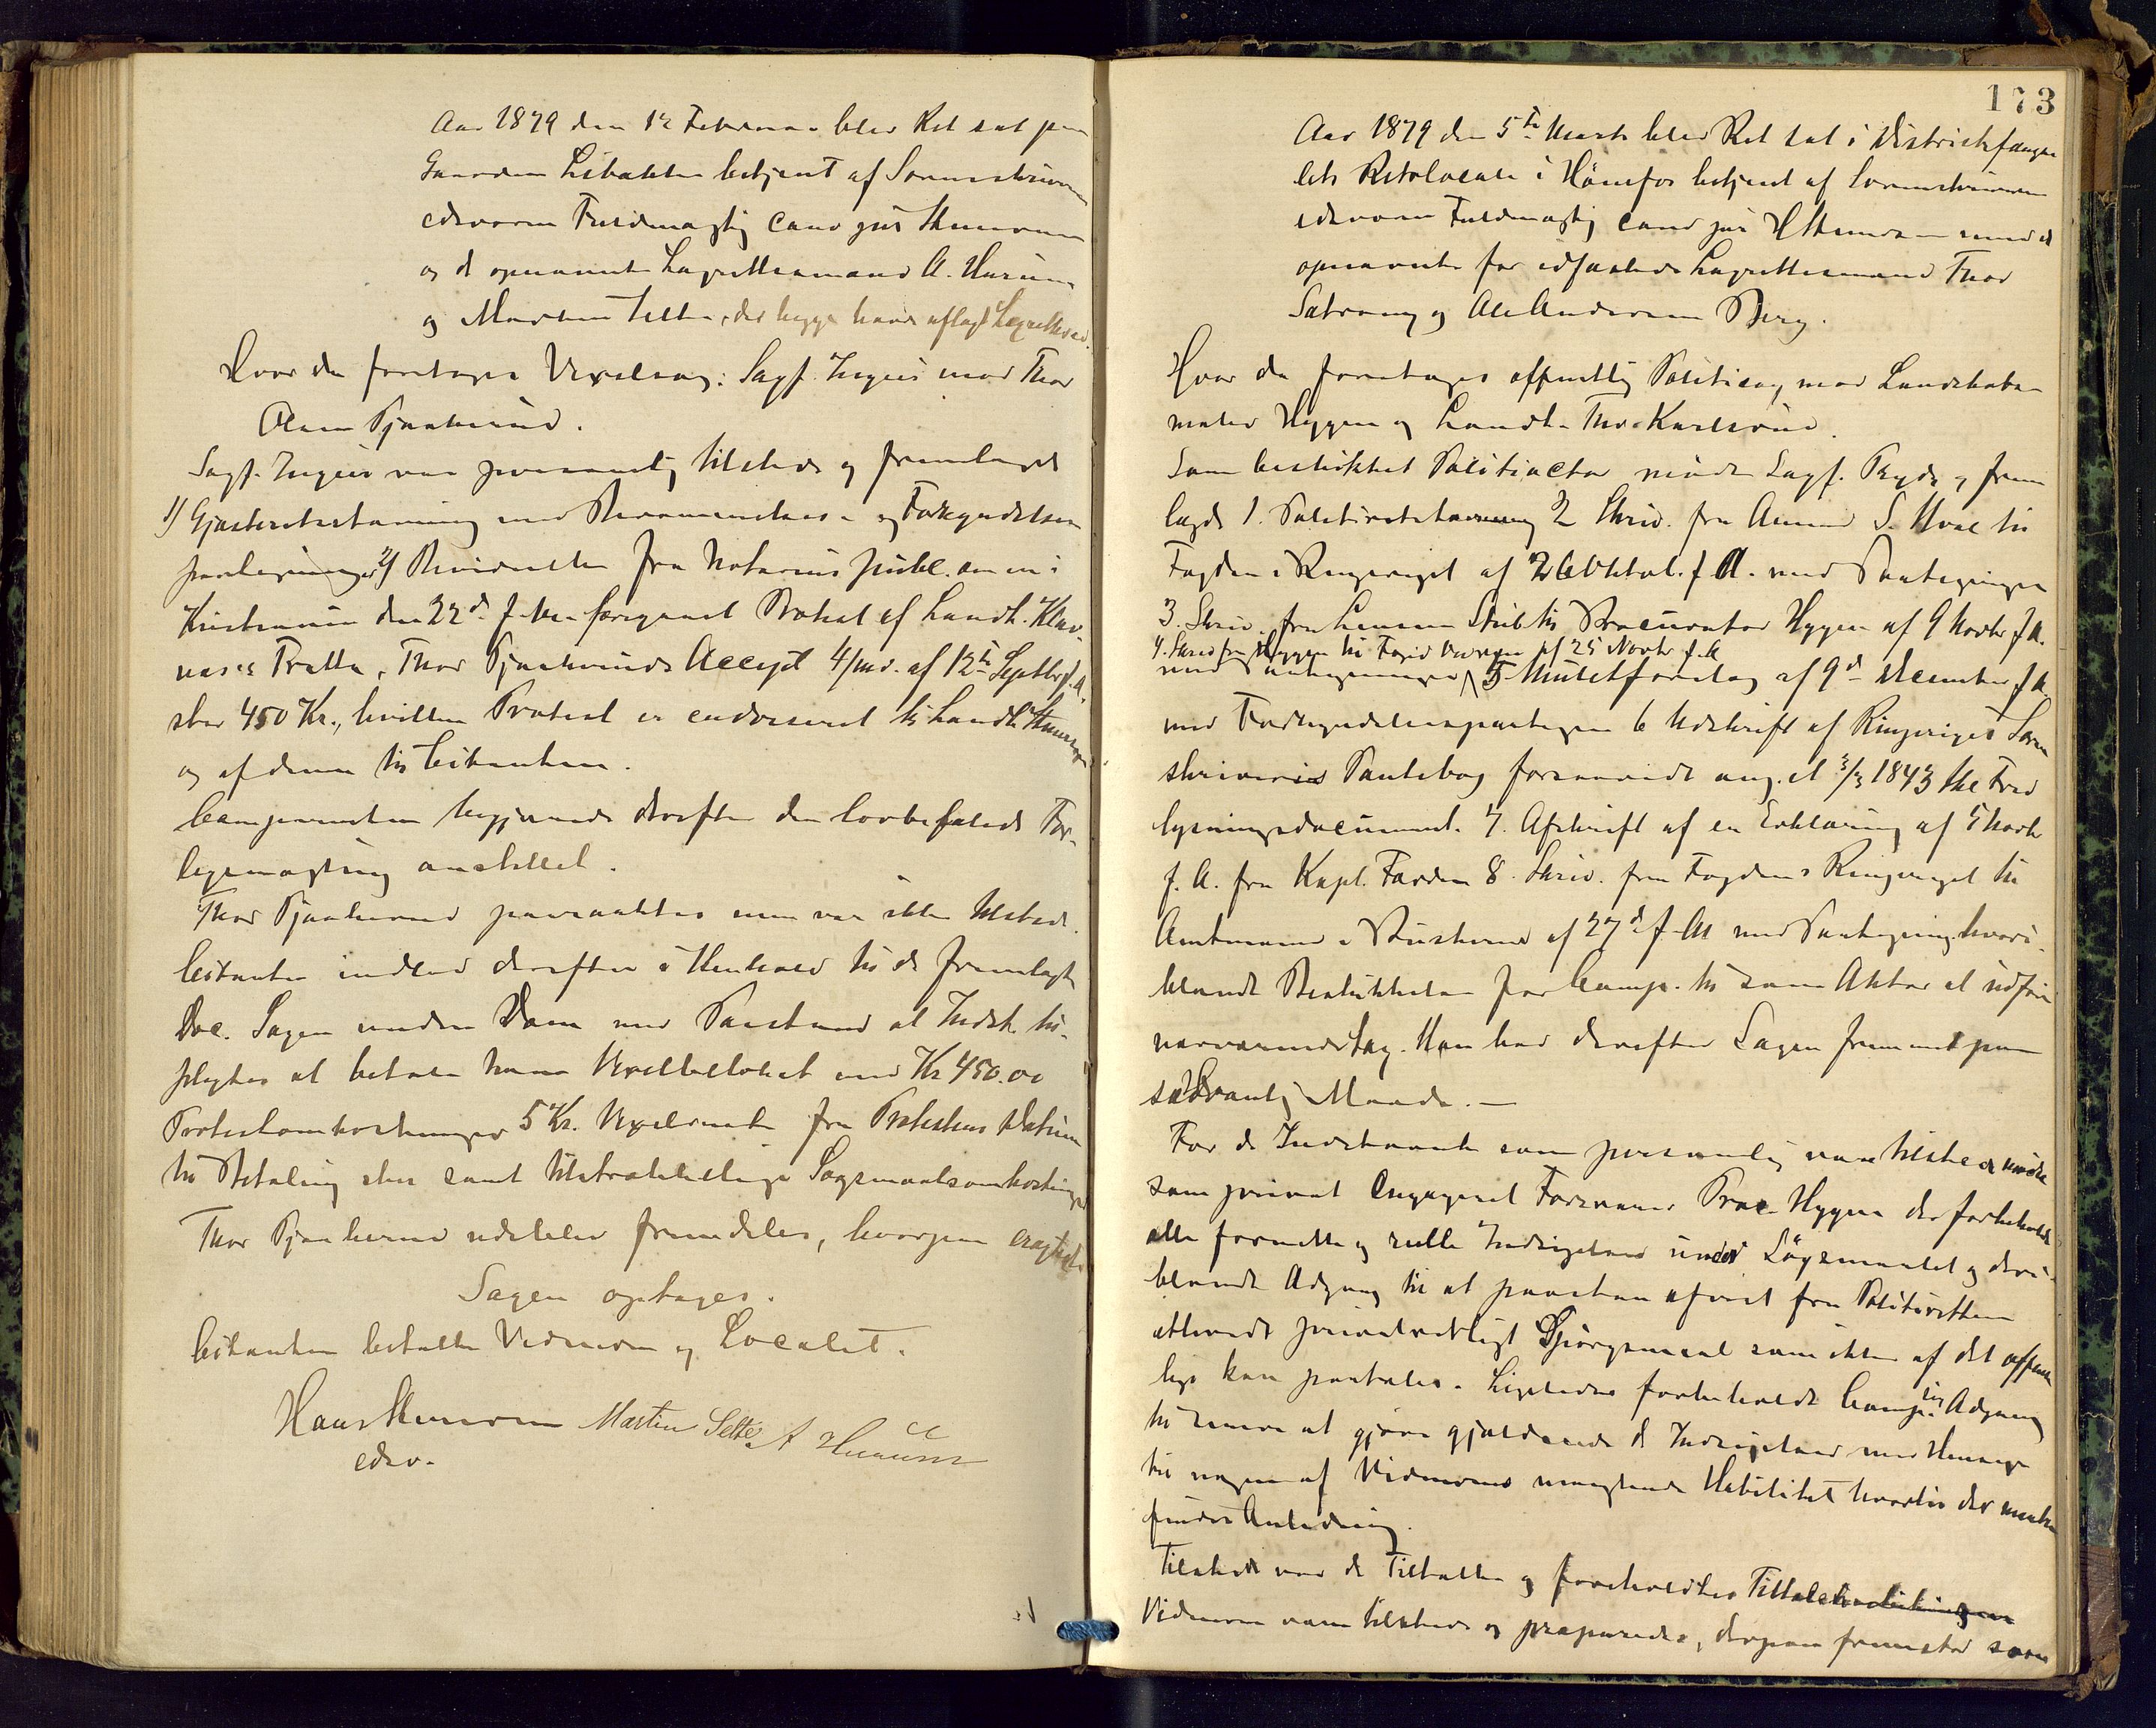 Aar 1879 den 12 Februar blev Ret sat paa
Gaarden Libakke betjent af Sorenskriverens
edsvorne Fuldmægtig cand jur Stenersen
og de opnævnte Lagrettesmænd A. Hurum
og Martin Sette, der begge havde aflagt Lagretteed.
Hvor da foretoges Vexelsag: Sagf. Ingier mod Thor
Olsen Tjoshaug.
Sagf. Ingier var personlig tilstede og fremlagde
1) Gjæsteretsstævning med Berammelses- og Forkyndelses
paategninger 2) Beviset fra Notarius publ. om en i
Kristiania den 22de f. M. foregaaet Protest af Landh.
Tratta, Thor Accept 4/md. af 12te Septbr f. A.
stor 450 Kr., hvilken Protest er endosseret til Landh.
og af denne til Citanten.
Comparenten begjærede derefter den lovbefalede For-
ligsmægling anstillet.
Thor paaraabtes men var ikke tilstede.
Citanten indlod derefter i Henhold til de fremlagte
Doc. Sagen under Dom med Paastand at Indst. til-
pligtes at betale ham Vexelbeløbet med Kr 450.00
Protestomkostninger 5 Kr. Vexelrente fra Protestens Datum
til Betaling sker samt tilstrækkelige Sagsomkostninger
Thor udeblev fremdeles, hvorpaa eragtedes
Sagen optages.
Citanten betalte Vidnerne og Localet.
Hans Stenersen Martin Sette A Hurum
edsv.
173
Aar 1879 den 5te Marts blev Ret sat i Districtsfængs-
lets Retslocale i Hönefos betjent af Sorenskriverens
edsvorne Fuldmægtig cand jur H Stenersen med de
opnævnte for edfæstede Lagrettesmænd Thor
Sætrang og Ole Andersen Berg.
Hvor da foretages offentlig Politisag mod Landskabs-
maler Hyggen og Landh. Thor Karlsrud.
Som beskikket Politiactor mødte Sagf. Ryds og frem
lagde 1. Politiretsstævning 2 Skriv. fra Amund S. Hval til
Fogden i Ringeriget af 26 Oktob. f. A. med Paategninger
3. Skriv. fra Lensm. Stub til Procurator Hyggen af 9 Novbr f. A.
4. Skriv fra Hyggen til Foged af 25 Novbr f. A
med Paategninger 5 Mulctforelæg af 9de December f. A.
med Forkyndelsespaategn 6 Udskrift af Ringeriges Soren
skriveries Pantebog forsaavidt ang. et 3/3 1843 Fred
lysningsdocument. 7. Afskrift af en Erklæring af 5 Novbr
f. A. fra Kapt. Farden 8. Skriv. fra Fogden i Ringeriget til
Amtmand i Buskerud af 27de f. M med Paategning hvori-
blandt Beskikkelse for Comp. til som Aktor at udføre
nærværende Sag. Han bad derefter Sagen fremmet paa
sædvanlig Maade. —
For de Indstævnte som personlig vare tilstede mødte
som privat engageret Forsvarer Proc. Hyggen der forbeholdt
alle formelle og reelle Indsigelser imod Søgsmaalet og deri-
blandt Adgang til at paastaa afvist fra Politiretten
ethvert privatretligt Spørgsmaal som ikke af det offent-
lige kan paatales. Ligeledes forbeholdt Comp. sig Adgang
til senere at gjøre gjældende de Indsigelser med Hensyn
til nogen af Vidnernes manglende Habilitet hvortil der maatte
findes Anledning.
Tilstede var de Tiltalte og foreholdtes Tiltale
Vidnerne vare tilstede og præpareredes, derpaa fremstod som